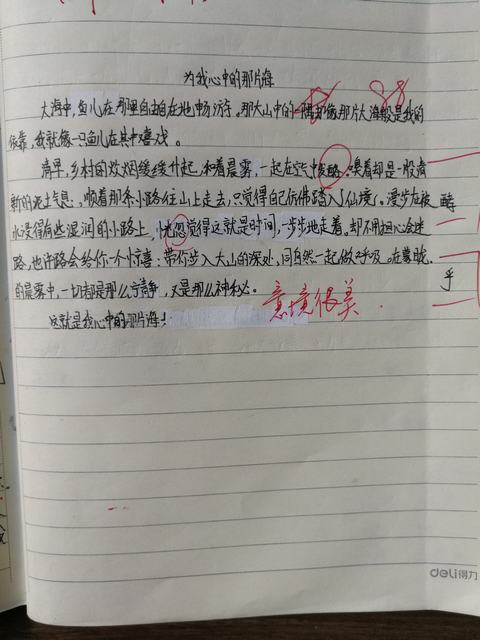 为我心中的那片海
88
大海中，鱼儿在那里自由自在地畅游。那大山中的一隅却像那片大海般是我的
依靠，我就像一只鱼儿在其中嬉戏。
清早，乡村的炊烟缓缓升起，和着晨雾，一起在空气中朦胧。嗅着却是一股清
新的泥土气息，顺着那条小路往山上走去，只觉得自己仿佛踏入了仙境。漫步在被
水浸得有些湿润的小路上，恍忽觉得这就是时间，一步步地走着。却不用担心会迷
路，也许路会给你一个惊喜：带你步入大山的深处，同自然一起做个呼吸。在蒙眬
的晨雾中，一切都是那么宁静，又是那么神秘。
乎
意境很美
这就是我心中的那片海！
deli得力